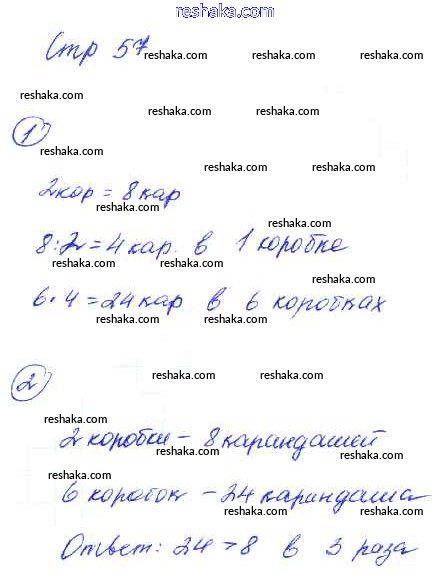 reshaka.com
Стр 57
reshaka.com reshaka.com reshaka.com
reshaka.com reshaka.com
1)
reshaka.com reshaka.com reshaka.com
2 кор = 8 кар
reshaka.com reshaka.com
8:2=4 кар. в 1 коробке
reshaka.com reshaka.com reshaka.com
reshaka.com
6·4=24 кар в 6 коробках
reshaka.com reshaka.com reshaka.com
2)
reshaka.com reshaka.com
reshaka.com reshaka.com
2 коробки – 8 карандашей
reshaka.com reshaka.com
reshaka.com
6 коробок – 24 карандаша
reshaka.com reshaka.com reshaka.com
Ответ: 24 > 8 в 3 раза
reshaka.com reshaka.com reshaka.com